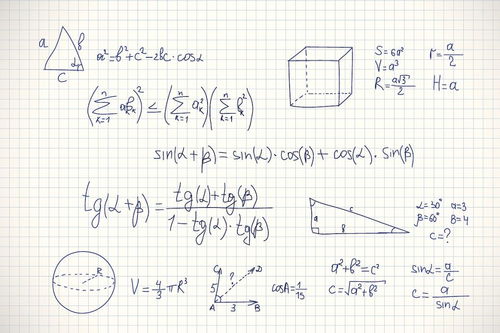 a b c α
a² = b² + c² - 2bc · cosα
S = 6a²
V = a³
R = a√3/2
r = a/2
H = a
(∑ₖ₌₁ⁿ aₖbₖ)² ≤ (∑ₖ₌₁ⁿ aₖ²)(∑ₖ₌₁ⁿ bₖ²)
sin(α + β) = sin(α) · cos(β) + cos(α) · sin(β)
tg(α + β) = tg(α) + tg(β) / 1 - tg(α) · tg(β)
a c
α = 30° a = 3
β = 60° B = 4
c = ?
R
V = 4/3 πR³
C D ?
5
A 3 B
cosA = 1/15
a² + b² = c²
c = √a² + b²
sinα = a/c
c = a/sinα